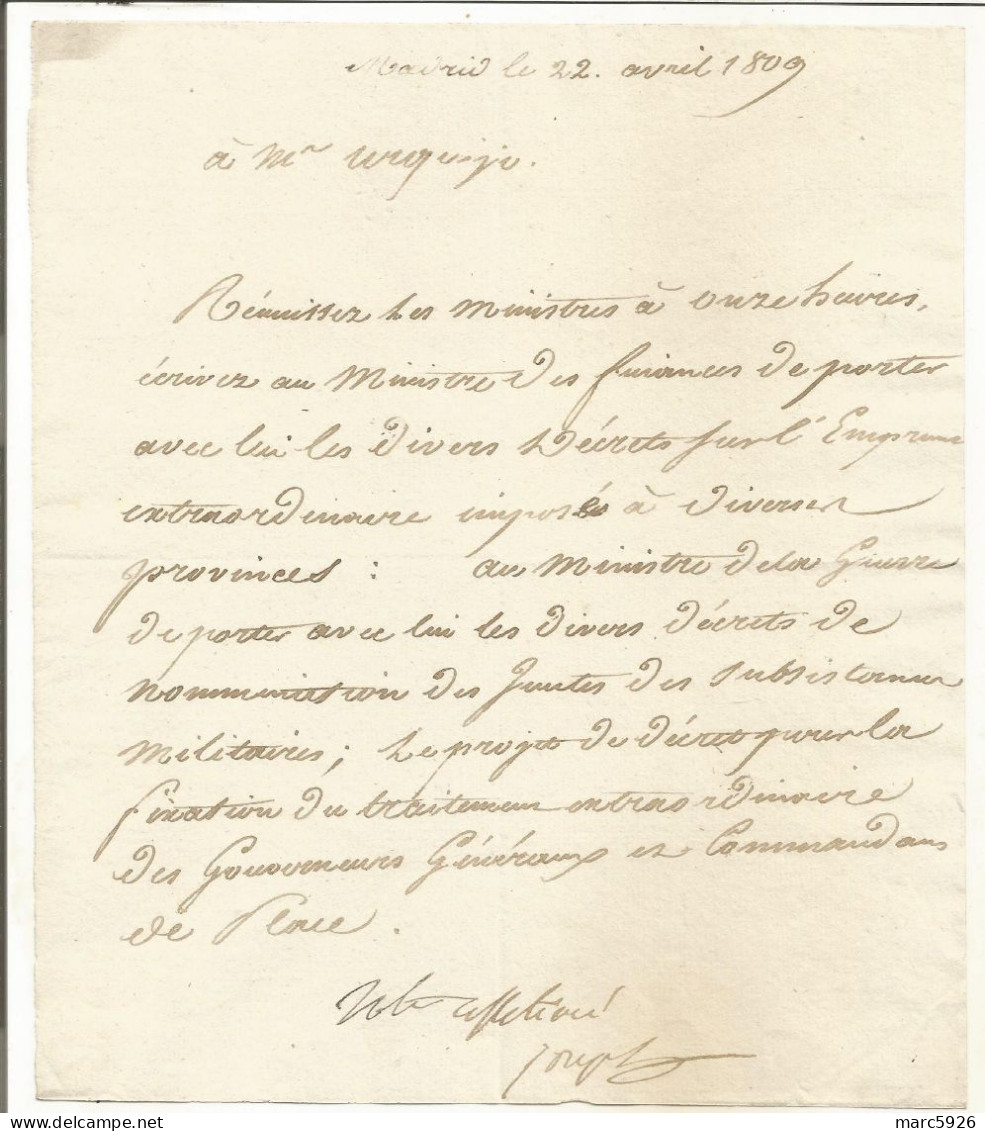 Madrid le 22. avril 1809
à Mr urquijo.
Réunissez les Ministres à onze heures,
écrivez au Ministre des finances de porter
avec lui les divers Décrets sur l'Emprunt
extraordinaire imposés à diverses
provinces : au Ministre de la Guerre
de porter avec lui les divers décrets de
nommination des Juntes des subsistances
Militaires ; Le projet de décret pour la
fixation du traitement extraordinaire
des Gouverneurs Généraux et Commandans
de Place .
Vtre affectioné
Joseph
marc5926